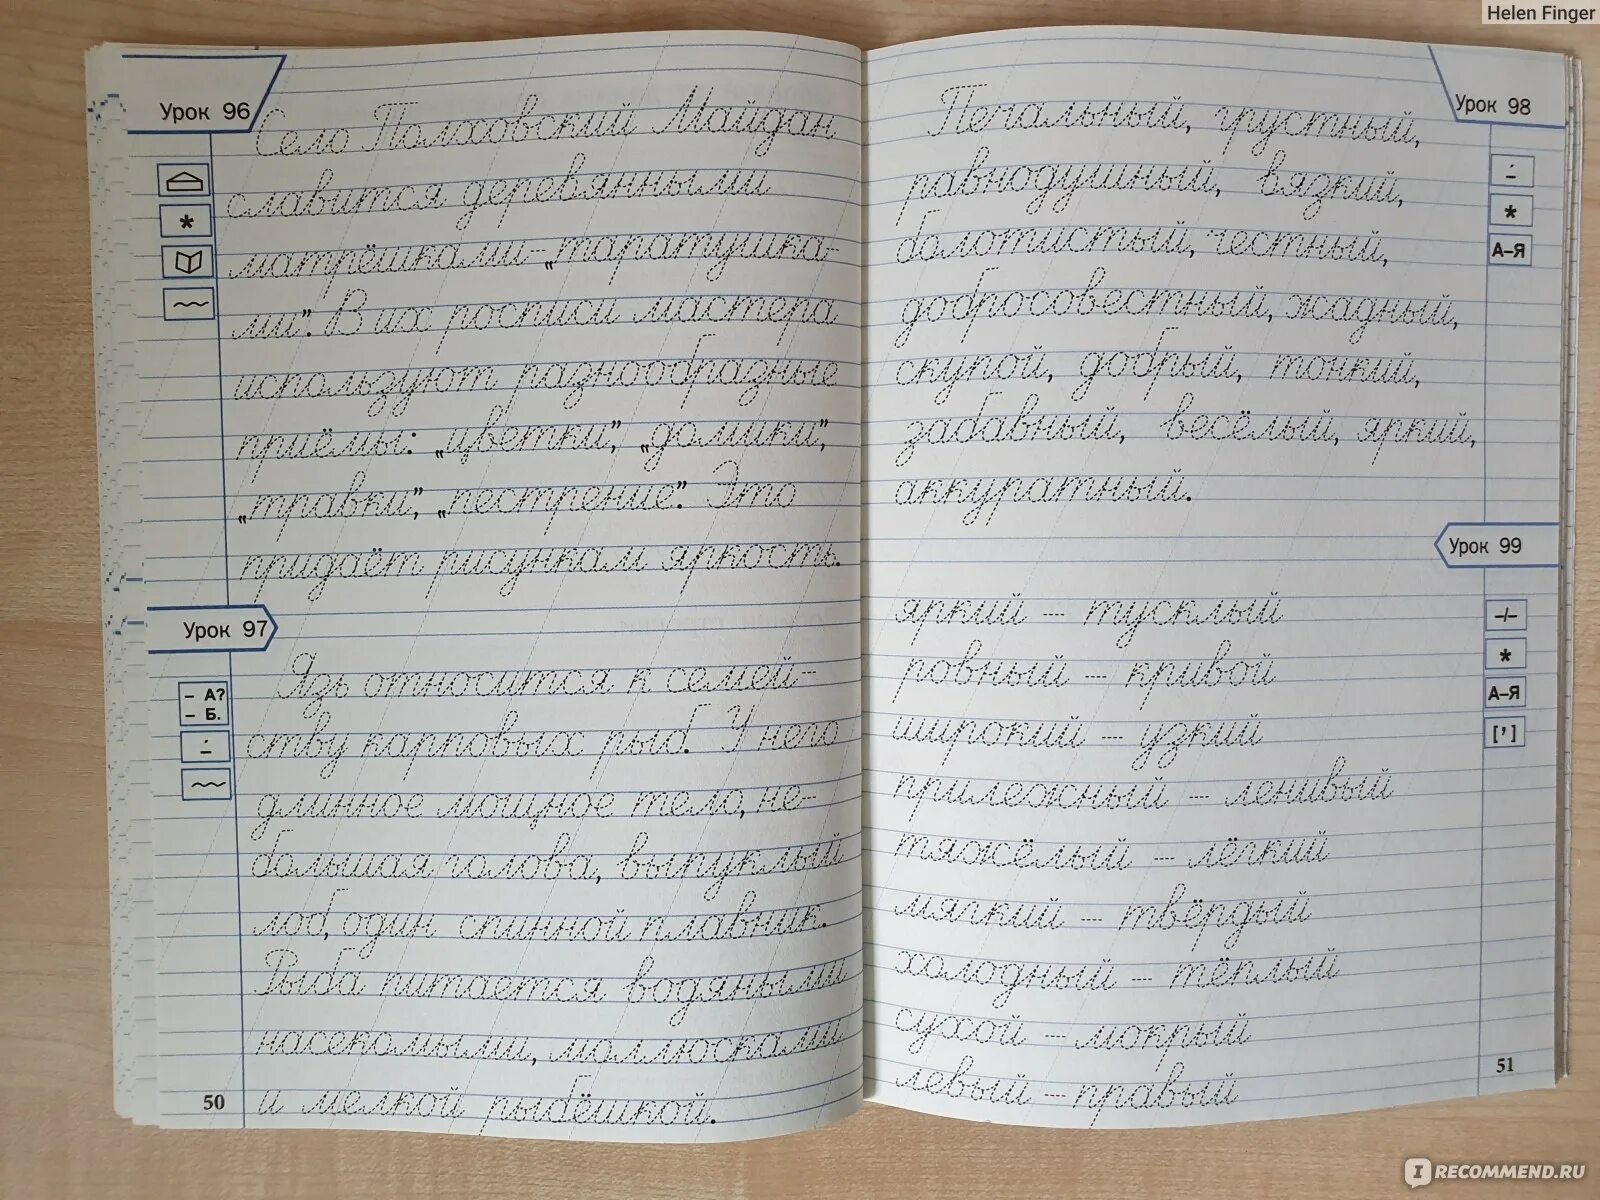 Helen Finger
Урок 96
Село Полховский Майдан
славится деревянными
матрёшками-„таратушка-
ми”. В их росписи мастера
используют разнообразные
приёмы: „цветки”, „домики”,
„травки”, „пестрение”. Это
придаёт рисункам яркость.
Урок 97
– А?
– Б.
Язь относится к семей-
ству карповых рыб. У него
длинное мощное тело, не-
большая голова, выпуклый
лоб, один спинной плавник.
Рыба питается водяными
насекомыми, моллюсками
и мелкой рыбёшкой.
50
Урок 98
А–Я
Печальный, грустный,
равнодушный, вязкий,
болотистый, честный,
добросовестный, жадный,
скупой, добрый, тонкий,
забавный, весёлый, яркий,
аккуратный.
Урок 99
–/–
*
А–Я
[’]
яркий – тусклый
ровный – кривой
широкий – узкий
прилежный – ленивый
тяжёлый – лёгкий
мягкий – твёрдый
холодный – тёплый
сухой – мокрый
левый – правый
51
IRECOMMEND.RU